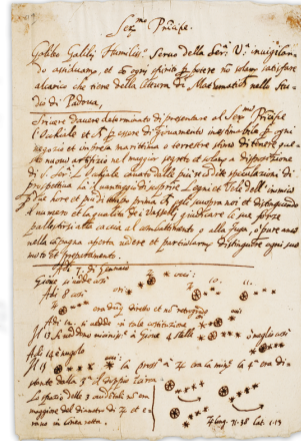 Ser.mo Principe.
Galileo Galilei Humiliss.o Servo della Ser.a V.a invigilan
do assiduamente, et con ogni spirito per potere non solam satisfare
al carico che tiene della lettura di Mathematich nello Stu
dio di Padova,
Scrivere d'avere determinato di presentare al Ser.mo Principe
l'Occhiale et per essere di giovamento inestimabile per ogni
negozio et impresa marittima o terrestre stimo di tenere que
sto nuovo artifizio nel maggior segreto et solam a disposizione
di S. Ser. L'Occhiale cavato dalle più recondite speculazioni di
prospettiva ha il vantaggio di scoprire Legni et Vele dell'inimico
per due hore et più di tempo prima che egli scuopra noi et distinguendo
il numero et la qualità de i Vasselli giudicare le sue forze
pallestirsi alla caccia al combattimento o alla fuga, o pure anco
nella campagna aperta vedere et particolarm distinguere ogni suo
moto et preparamento.
Adi 7 di Gennaio
Giove si vede così
Adi 8 così
era dunq diretto et non retrogrado
Adi 12 si vedde in tale costituzione
Il 13 si veddono viciniss.i a Giove 4 stelle
Adi 14 è nugolo
Il 15
la pross.a a
la 4.a era di
stante dalla 3.a il doppio
Lo spazio delle 3 occidentali no era
maggiore del diametro di
et e
rano in linea retta.
long. 71.38 lat. 1.13